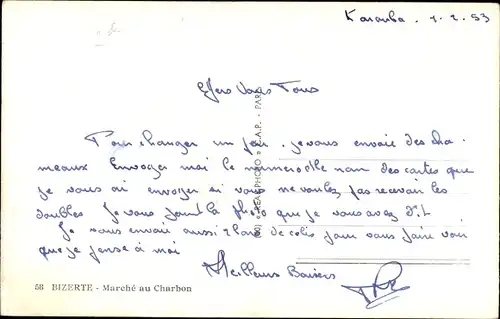 Karouba . 7.2.53
Chers Vous Tous
Pour changer un peu . je vous envoie des cha
meaux Envoyer moi le numero et le nom des cartes que
je vous ai envoyer si vous ne voulez pas recevoir les
doubles Je vous joint la photo que je vous avez dit
Je vous envoie aussi 2 bons de colis pour vous faire voir
que je pense à moi
Meilleurs Baisers
REAL-PHOTO - C.A.P. - PARIS
58 BIZERTE - Marché au Charbon